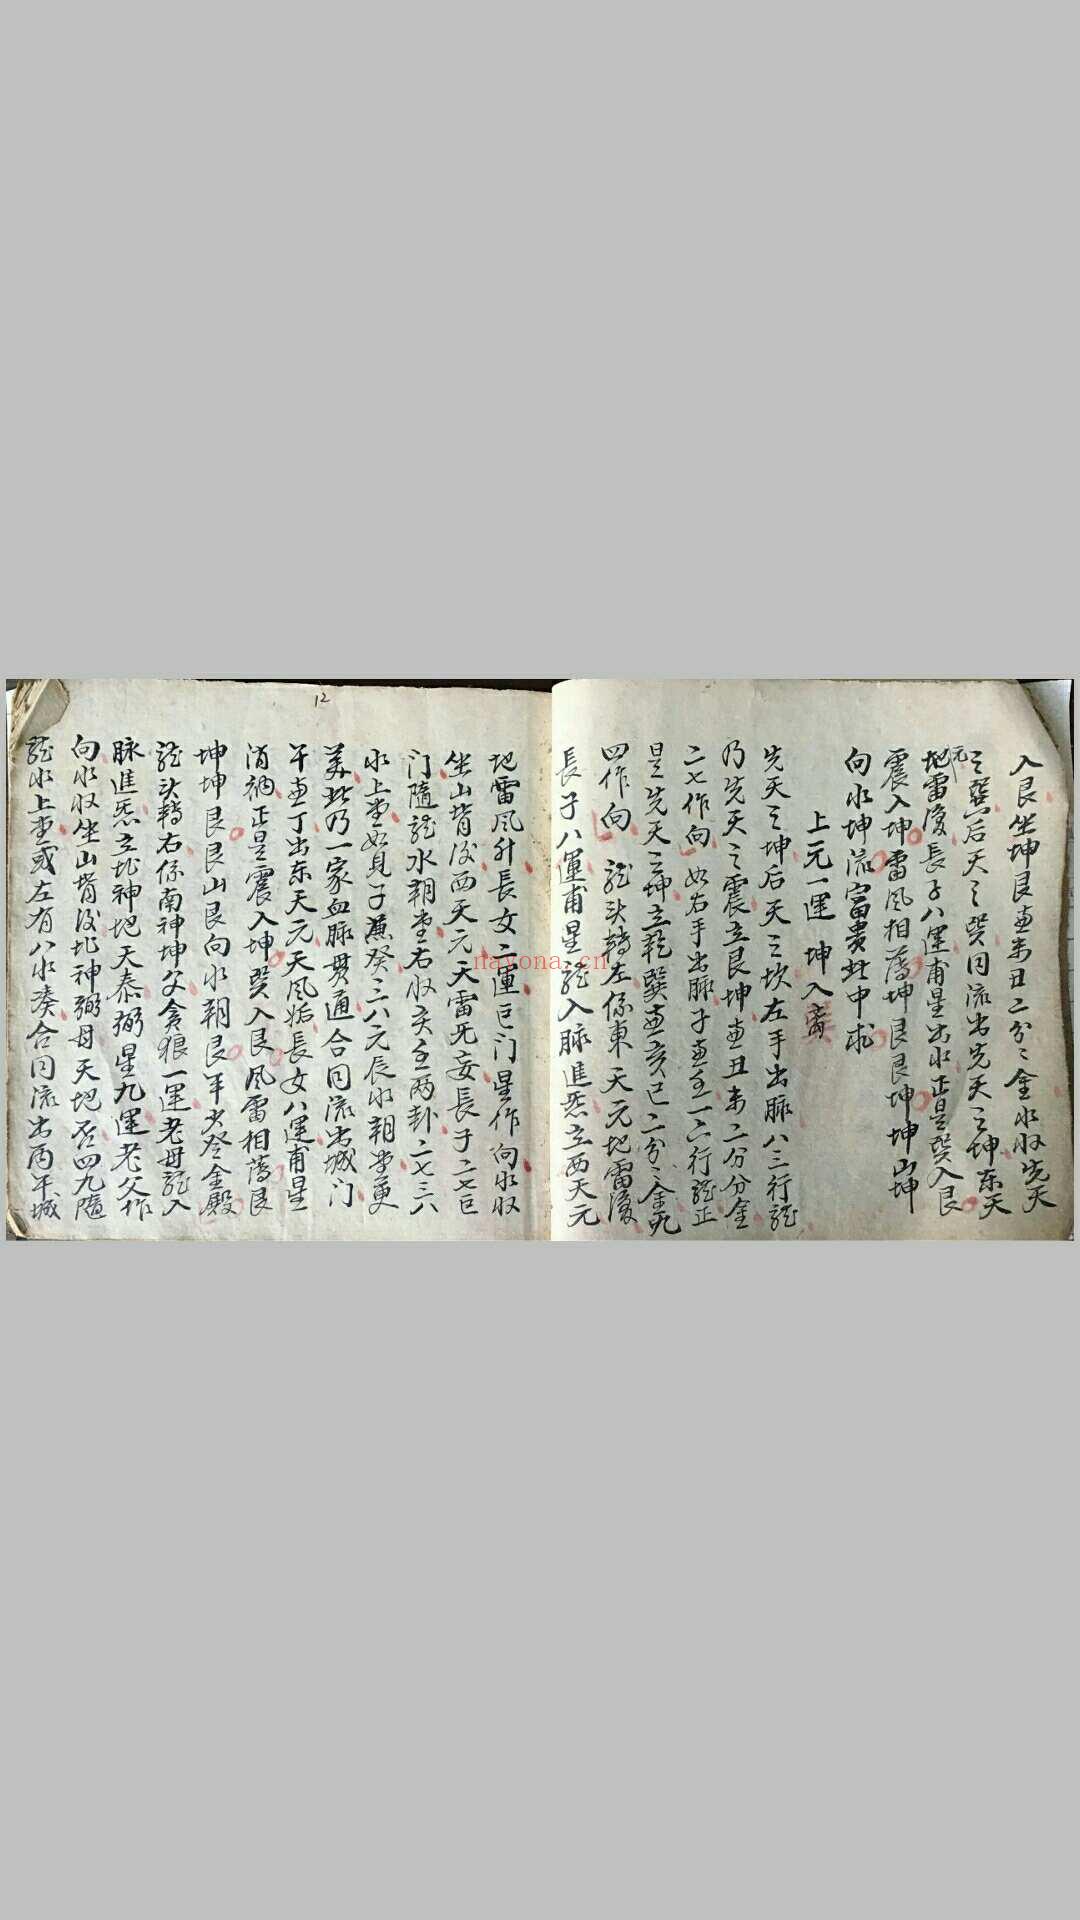 入艮坐坤艮兼未丑二分之金水收先天
之巽后天之巽同流出先天之坤东天
元
地雷復長子八運甫星出水正是巽入艮
震入坤雷風相薄坤艮艮坤坤山坤
向水坤流富貴此中求
上元一運 坤入离
先天之坤后天之坎左手出脉八三行龍
乃先天之震立艮坤兼丑未二分分金
二七作向 如右手出脉子兼壬一六行龍正
是先天之坤立乾巽兼亥巳二分之金九
四作向 龍头轉左係東天元地雷復
長子八運甫星龍入脉進炁立西天元
地雷風升長女二運巨门星作向水收
坐山背後西天元天雷无妄長子二七巨
门随龍水朝堂右收亥壬两卦二七三六
水上堂如見子兼癸三八元辰水朝堂更
美此乃一家血脉贯通合同流出城门
午兼丁出东天元天風姤長女八運甫星
消納正是震入坤巽入艮風雷相薄艮
坤坤艮艮山艮向水朝艮年少登金殿
龍头轉右係南神坤父貪狼一運老母龍入
脉進炁立北神地天泰弼星九運老父作
向水收坐山背後北神弼母天地否四九隨
龍水上堂或左右八水湊合同流出丙午城
12
nayona.cn